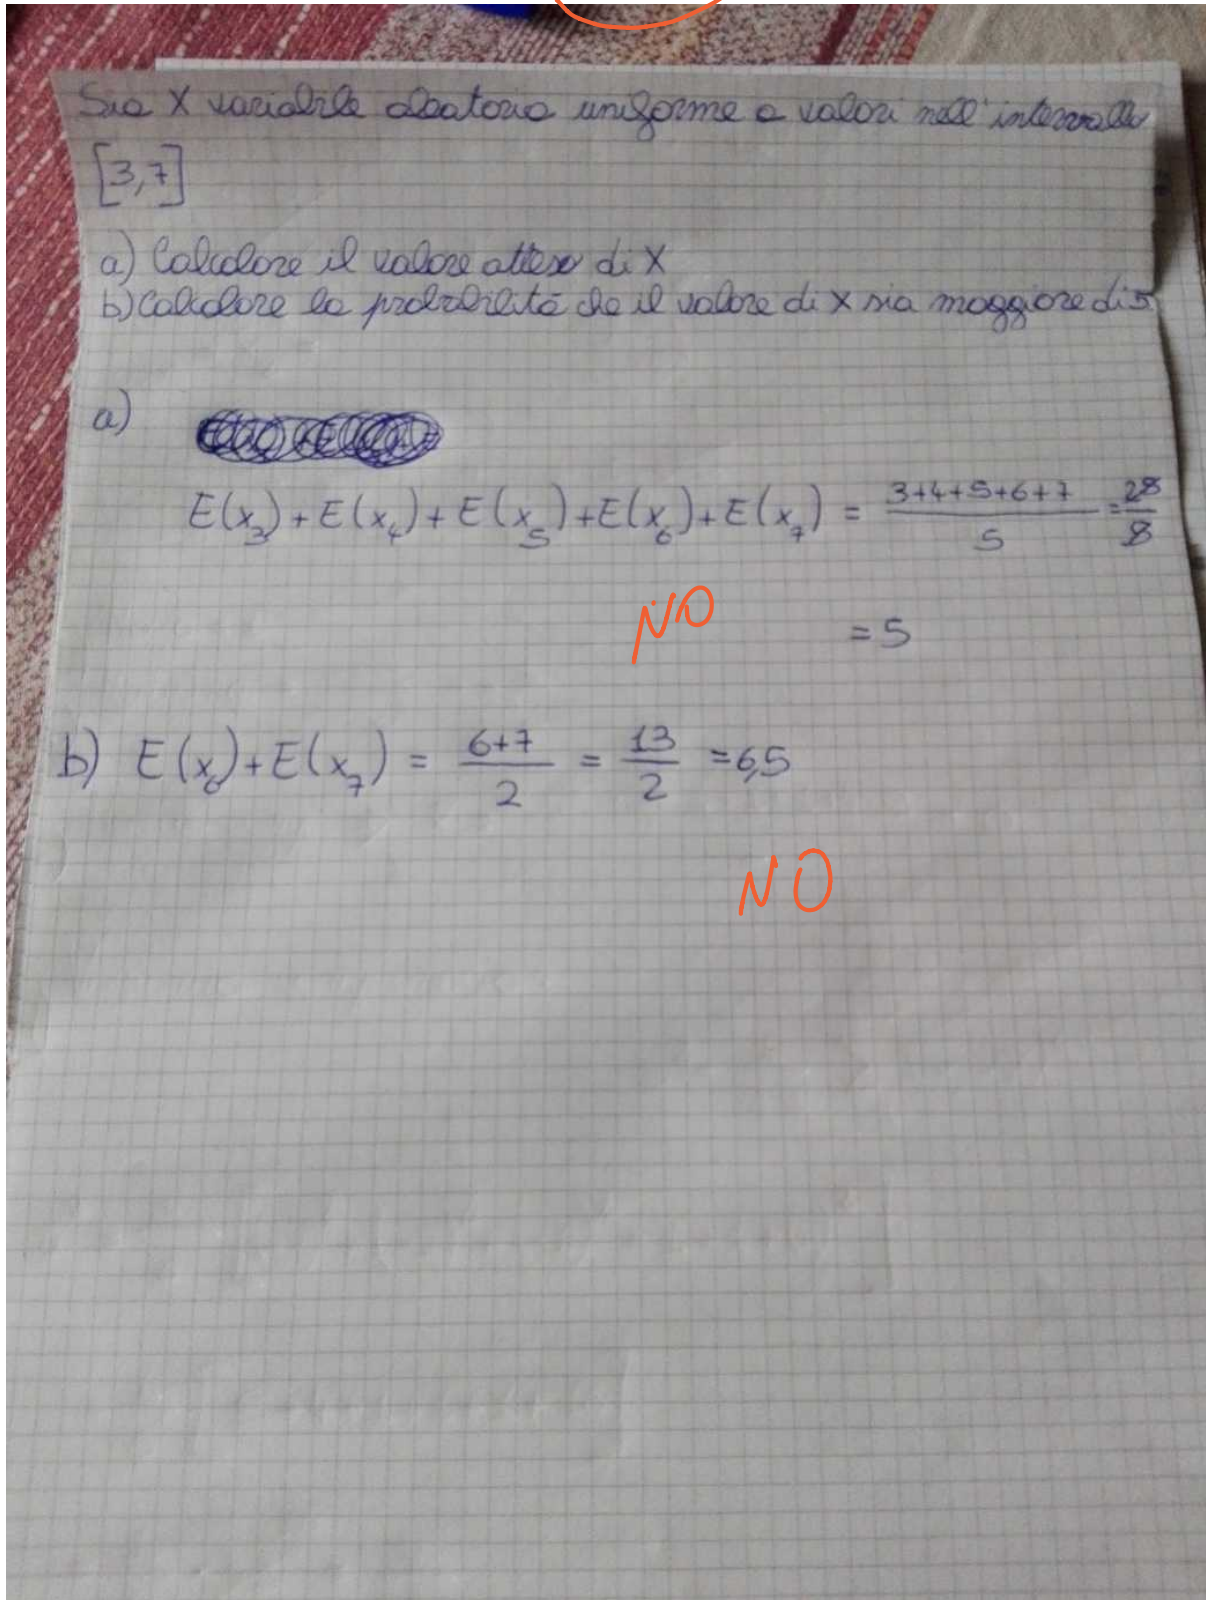 Sia X variabile aleatoria uniforme a valori nell'intervallo
[3,7]
a) Calcolare il valore atteso di X
b) Calcolare la probabilità che il valore di X sia maggiore di 5
a)
E(x₃)+E(x₄)+E(x₅)+E(x₆)+E(x₇) = (3+4+5+6+7)/5 =
= 5
NO
b) E(x₆)+E(x₇) = (6+7)/2 = 13/2 = 6,5
NO